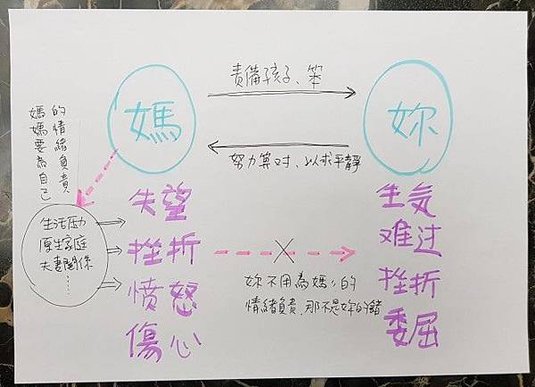 責備孩子、笨
媽
妳
努力算对、以求平靜
媽媽要為自己
的情緒負責
生活压力
原生家庭
夫妻關係
......
失望
挫折
憤怒
傷心
妳不用為媽媽的
情緒負責、那不是妳的錯
生气
难过
挫折
委屈